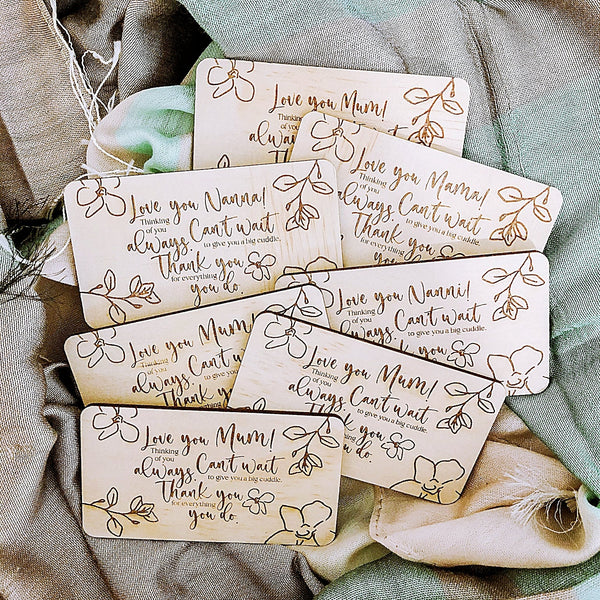 Love you Mum!
Thinking
of you
always.
Love you Mama!
Thinking
of you
always. Can't wait
to give you a big cuddle.
Thank you
for everything
you do.
Love you Nanna!
Thinking
of you
always. Can't wait
to give you a big cuddle.
Thank you
for everything
you do.
Love you Nanni!
Thinking
of you
always. Can't wait
to give you a big cuddle.
you
Love you Mum
Thinking
of you
always. Can't wait
to give you a big cuddle.
Thank you
Love you Mum!
Thinking
of you
always. Can't wait
to give you a big cuddle.
Thank you
for everything
you do.
Love you Mum!
Thinking
of you
always. Can't wait
to give you a big cuddle.
Thank you
for everything
you do.